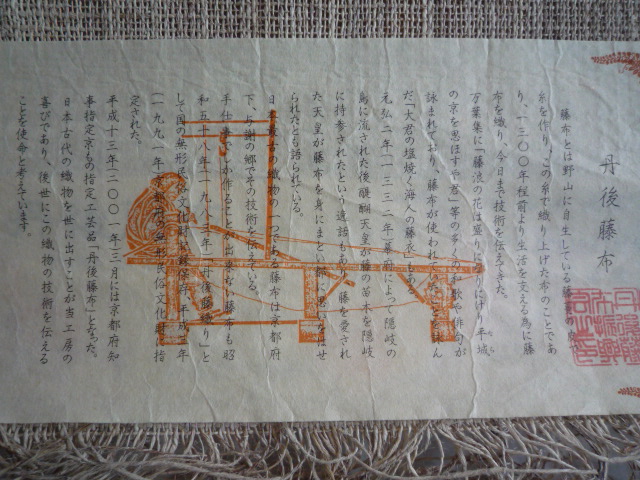 丹後藤布
藤布とは野山に自生している
糸を作り、この糸で織り上げた布のことであ
り、一三〇〇年程前より生活を支える為に藤
布を織り、今日まで技術を伝えてきた。
万葉集に「藤浪の花は盛りになりにけり平城
なら
の京を思ほすや君」等の多くの和歌や俳句が
詠まれており、藤布が使われていたことを詠ん
だ「大君の塩焼く海人の藤衣」も
元弘二年（一三三二年）幕府によって隠岐の
島に流された後醍醐天皇が藤の苗木を隠岐
に持参されたという逸話もあり、藤を愛され
た天皇が藤布を身にまとい都に思いをはせ
られたとも語られている。
日本最古の織物の一つである藤布は京都府
下、与謝の郷でその技術を伝えている。
手仕事でしか作ることが出来ない藤布も昭
和五十八年（一九八三年）「丹後藤織り」と
して国の無形民俗文化財に記録保存、平成三年
（一九九一年）京都府の無形民俗文化財に指
定された。
平成十三年（二〇〇一年）三月には京都府知
事指定京もの指定工芸品「丹後藤布」となった。
日本古代の織物を世に出すことが当工房の
喜びであり、後世にこの織物の技術を伝える
ことを使命と考えています。